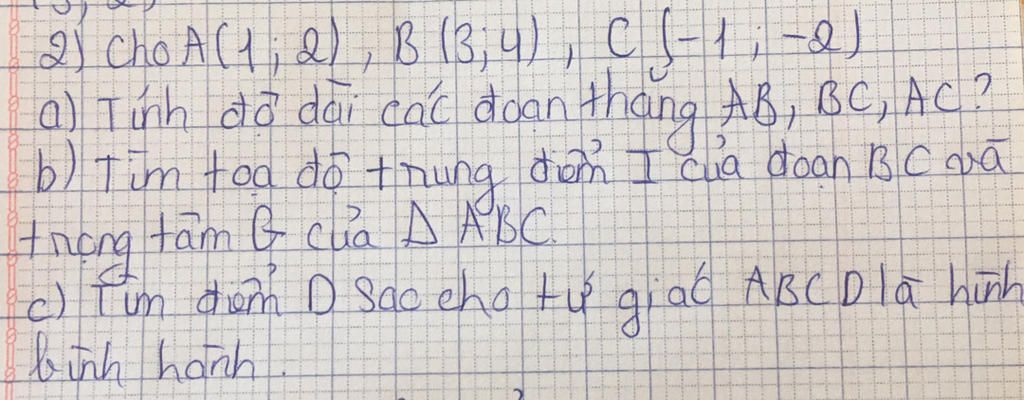 2) Cho A(1; 2), B (3; 4), C (-1; -2)
a) Tính độ dài các đoạn thẳng AB, BC, AC?
b) Tìm toạ độ trung điểm I của đoạn BC và
trọng tâm G của Δ ABC.
c) Tìm điểm D sao cho tứ giác ABCD là hình
bình hành.